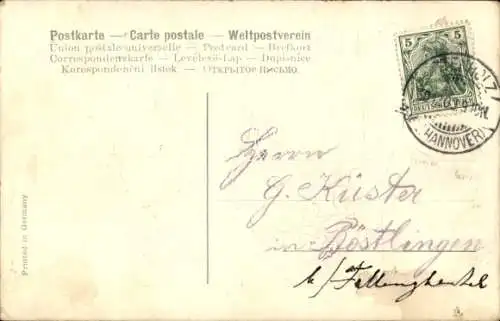 Postkarte — Carte postale — Weltpostverein
Union postale universelle — Postcard — Brefkort
Correspondenzkarte — Levelező-Lap — Dopisnice
Korespondenční lístek — ОТКРЫТОЕ ПИСЬМО.
5 5
HANNOVER
Herrn
G. Küster
in Böstlingen
b/ Fallingbostel
Printed in Germany